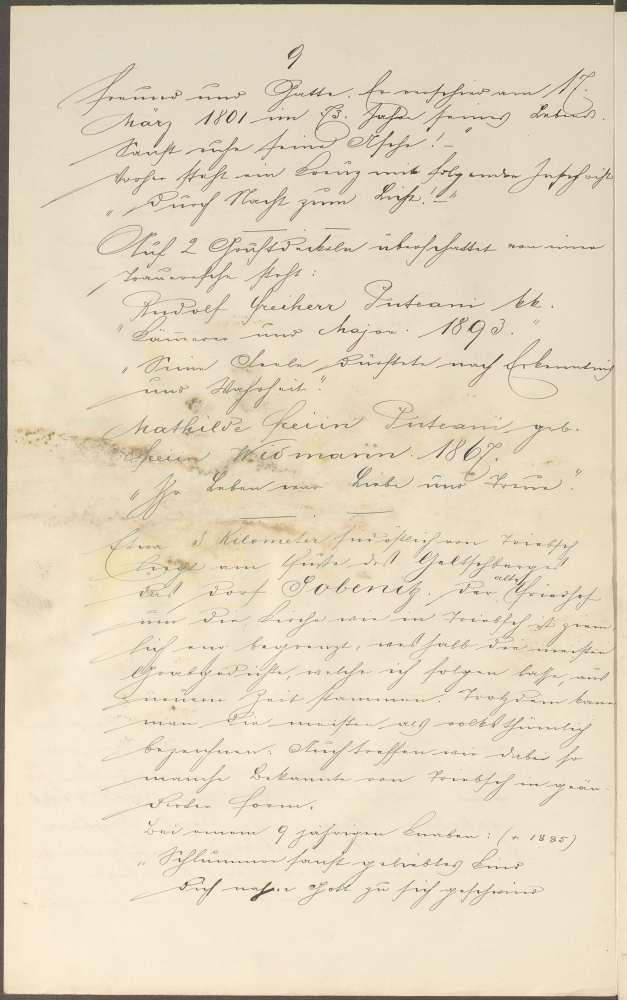 9
Freund und Gatte. Er verschied am 17.
März 1801 im 73. Jahre seines Lebens.
Sanft ruhe seine Asche! –"
Vorher steht ein Kreuz mit folgender Inschrift
„Durch Nacht zum Licht! –"
Auf 2 Gruftdeckeln überschattet von einer
Traueresche steht:
Rudolf Freiherr Puteani kk.
"Kämmerer und Major. 1893."
„Seine Seele dürstete nach Erkenntnis
und Wahrheit".
Mathilde Freiin Puteani, geb.
Freiin Widmann. 1867.
„Ihr Leben war Liebe und Treue".
Etwa 3 Kilometer südöstlich von Triebsch
liegt am Fuße des Geltschberges
das Dorf Sobenitz. Der alte Friedhof
um die Kirche wie in Triebsch ist ziem-
lich eng begrenzt, weshalb die meisten
Grabgedichte, welche ich folgen lasse, aus
neuerer Zeit stammen. Trotzdem kann
man die meisten als volksthümlich
bezeichnen. Auch treffen wir dabei so
manche Bekannte von Triebsch in geän-
derter Form.
Bei einem 9 jährigen Knaben: († 1885)
„Schlummre sanft geliebtes Kind
Dich nahm Gott zu sich geschwind